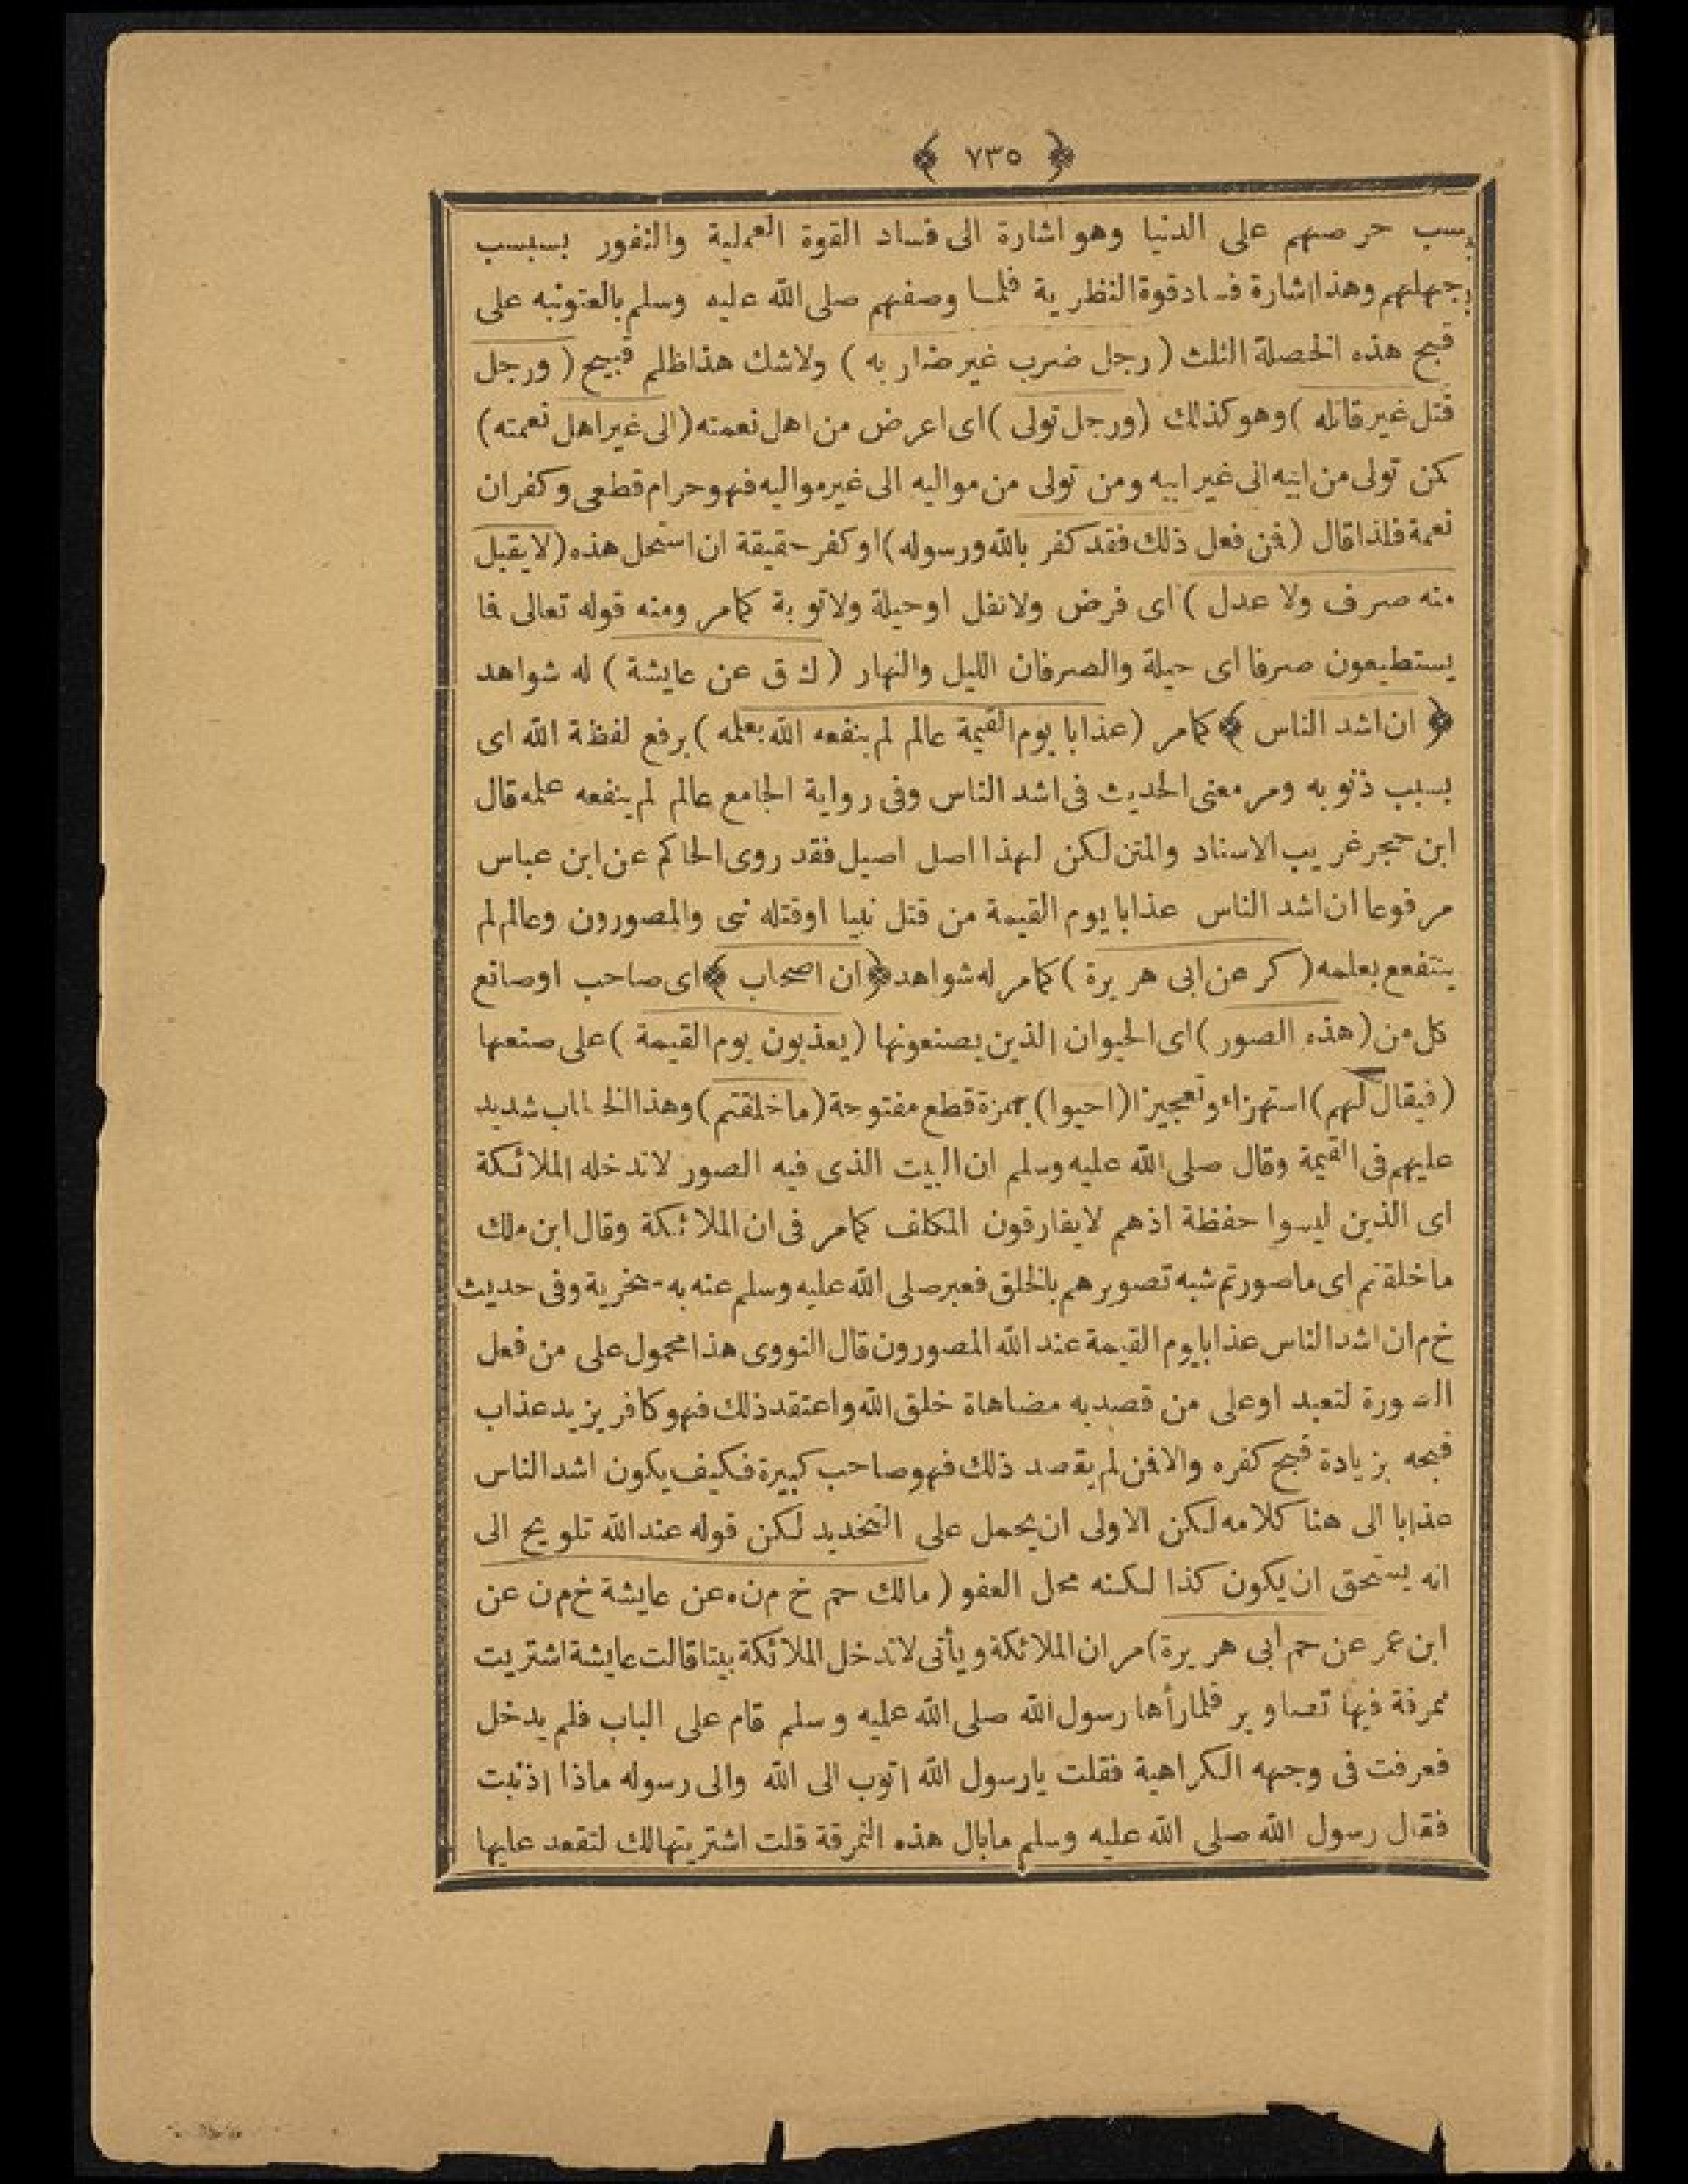 ﴿ ٧٣٥ ﴾
بسبب حرصهم على الدنيا وهو اشارة الى فساد القوة العملية والنفور بسبب
جهلهم وهذا اشارة فساد قوة النظرية فلما وصفهم صلى الله عليه وسلم بالعتو نبه على
قبح هذه الخصلة الثلث (رجل ضرب غير ضاربه) ولاشك هذا ظلم قبيح (ورجل
قتل غير قاتله) وهو كذلك (ورجل تولى) اى اعرض من اهل نعمته (الى غير اهل نعمته)
كمن تولى من ابيه الى غير ابيه ومن تولى من مواليه الى غير مواليه فهو حرام قطعى وكفران
نعمة فلذا قال (فمن فعل ذلك فقد كفر بالله ورسوله) او كفر حقيقة ان استحل هذه (لا يقبل
منه صرف ولا عدل) اى فرض ولا نفل او حيلة ولا توبة كمامر ومنه قوله تعالى فما
يستطيعون صرفا اى حيلة والصرفان الليل والنهار (ك ق عن عايشة) له شواهد
﴿ ان اشد الناس ﴾ كمامر (عذابا يوم القيمة عالم لم ينفعه الله بعلمه) برفع لفظة الله اى
بسبب ذنوبه ومر معنى الحديث فى اشد الناس وفى رواية الجامع عالم لم ينفعه علمه قال
ابن حجر غريب الاسناد والمتن لكن لهذا اصل اصيل فقد روى الحاكم عن ابن عباس
مرفوعا ان اشد الناس عذابا يوم القيمة من قتل نبيا او قتله نبى والمصورون وعالم لم
ينتفع بعلمه (كر عن ابى هريرة) كمامر له شواهد ﴿ ان اصحاب ﴾ اى صاحب او صانع
كل من (هذه الصور) اى الحيوان الذين يصنعونها (يعذبون يوم القيمة) على صنعها
(فيقال لهم) استهزاء وتعجيزا (احيوا) بهمزة قطع مفتوحة (ما خلقتم) وهذا الخطاب شديد
عليهم فى القيمة وقال صلى الله عليه وسلم ان البيت الذى فيه الصور لا تدخله الملائكة
اى الذين ليسوا حفظة اذهم لا يفارقون المكلف كمامر فى ان الملائكة وقال ابن ملك
ما خلقتم اى ما صورتم شبه تصويرهم بالخلق فعبر صلى الله عليه وسلم عنه به سخرية وفى حديث
خ م ان اشد الناس عذابا يوم القيمة عند الله المصورون قال النووى هذا محمول على من فعل
الصورة لتعبد او على من قصد به مضاهاة خلق الله واعتقد ذلك فهو كافر يزيد عذاب
قبحه بزيادة قبح كفره والا فمن لم يقصد ذلك فهو صاحب كبيرة فكيف يكون اشد الناس
عذابا الى هنا كلامه لكن الاولى ان يحمل على التحديد لكن قوله عند الله تلويح الى
انه يستحق ان يكون كذا لكنه محل العفو (مالك حم خ م ن ه عن عايشة خ م ن عن
ابن عمر عن حم ابى هريرة) مر ان الملائكة ويأتى لا تدخل الملائكة بيتا قالت عايشة اشتريت
نمرقة فيها تصاوير فلما رأها رسول الله صلى الله عليه وسلم قام على الباب فلم يدخل
فعرفت فى وجهه الكراهية فقلت يا رسول الله اتوب الى الله والى رسوله ماذا اذنبت
فقال رسول الله صلى الله عليه وسلم ما بال هذه النمرقة قلت اشتريتها لك لتقعد عليها